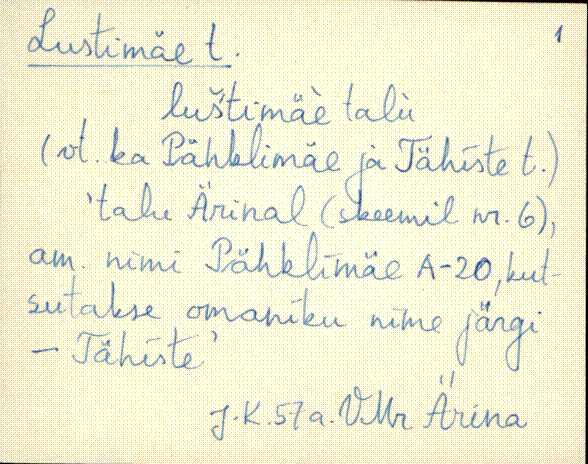 Lustimäe t.
1
lus̆timäè talù
(vt. ka Pähklimäe ja Tähiste t.)
'talu Ärinal (skeemil nr. 6),
am. nimi Pähklimäe A-20, kut-
sutakse omaniku nime järgi
— Tähiste'
J.K. 57 a. VMr Ärina